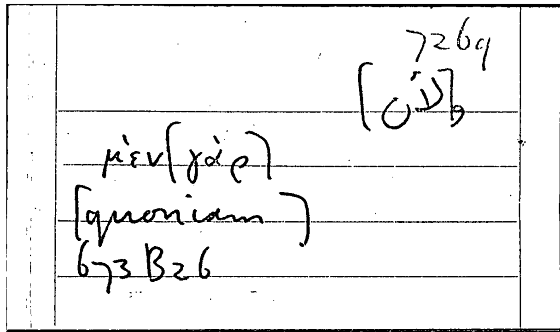 7269
[لأن]
μὲν [γὰρ]
[quoniam]
673 B26